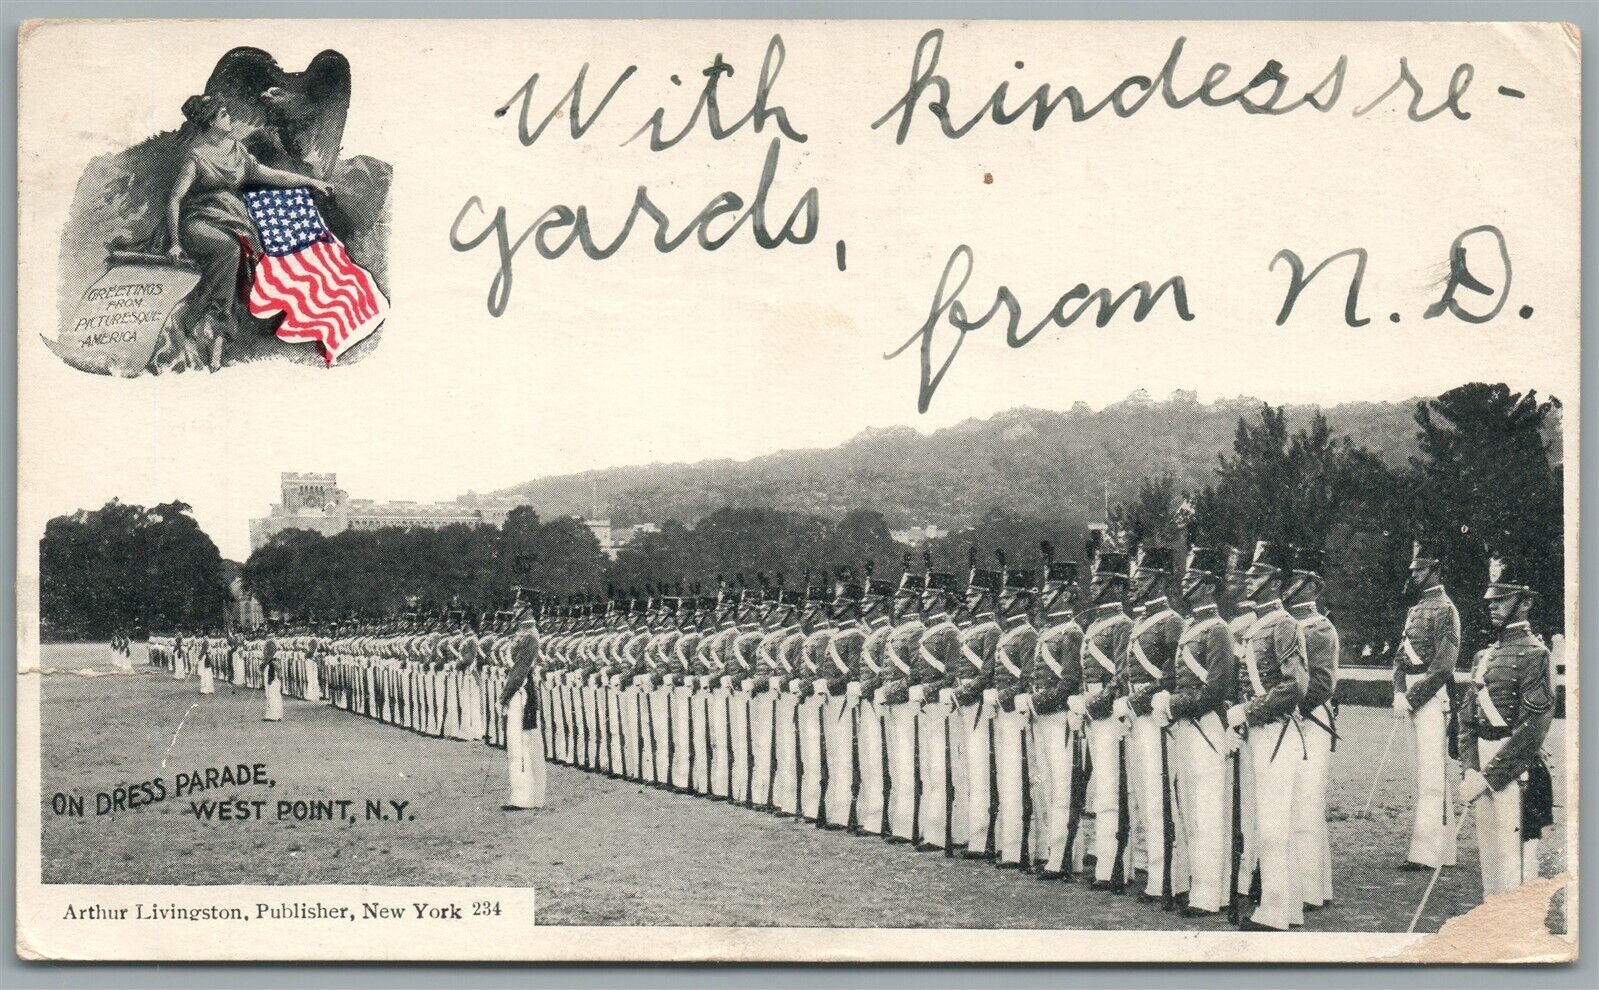 With kindess re-
gards,
from N.D.
GREETINGS
FROM
PICTURESQUE
AMERICA
ON DRESS PARADE,
WEST POINT, N.Y.
Arthur Livingston, Publisher, New York 234